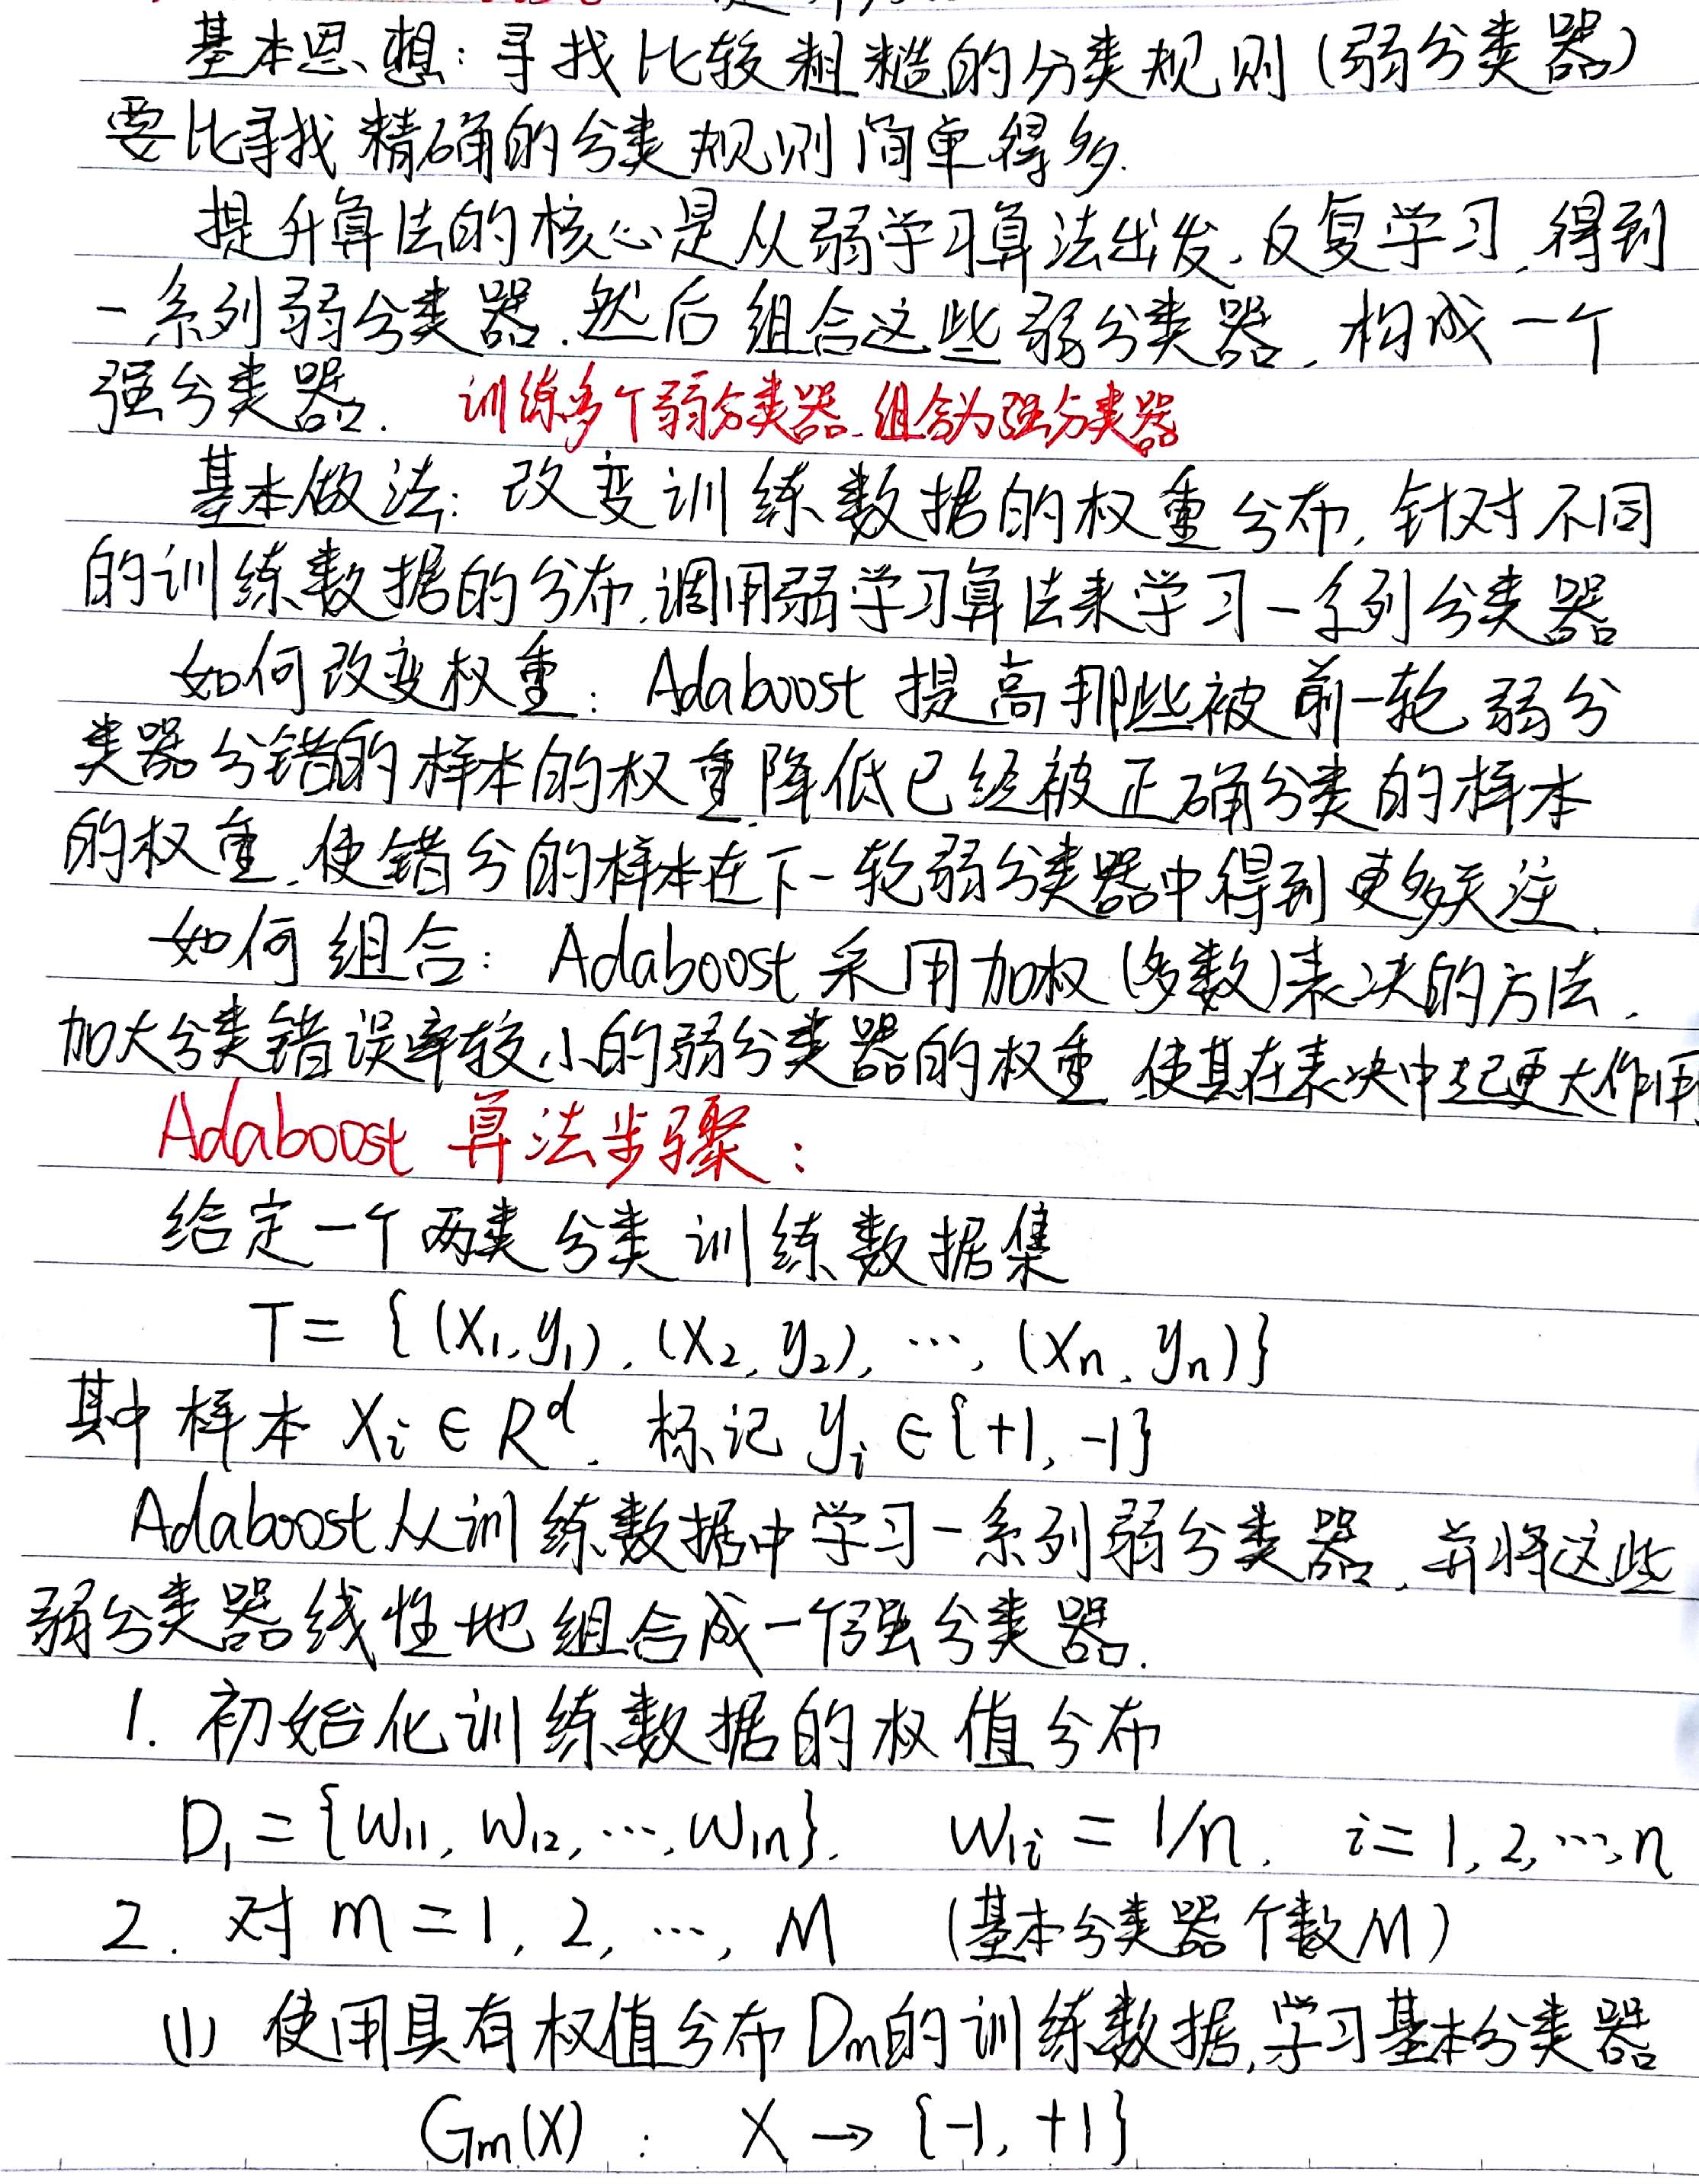 基本思想：寻找比较粗糙的分类规则（弱分类器）
要比寻找精确的分类规则简单得多.
提升算法的核心是从弱学习算法出发,反复学习,得到
一系列弱分类器.然后组合这些弱分类器,构成一个
强分类器. 训练多个弱分类器.组合为强分类器
基本做法：改变训练数据的权重分布,针对不同
的训练数据的分布,调用弱学习算法来学习一系列分类器
如何改变权重：Adaboost 提高那些被前一轮弱分
类器分错的样本的权重,降低已经被正确分类的样本
的权重,使错分的样本在下一轮弱分类器中得到更多关注.
如何组合：Adaboost 采用加权(多数)表决的方法.
加大分类错误率较小的弱分类器的权重 使其在表决中起更大作用
Adaboost 算法步骤：
给定一个两类分类训练数据集
T = {(X₁,y₁),(X₂,y₂),…,(Xn,yn)}
其中样本 Xi ∈ R^d, 标记 yi ∈{+1,-1}
Adaboost从训练数据中学习一系列弱分类器,并将这些
弱分类器线性地组合成一个强分类器.
1. 初始化训练数据的权值分布
D₁ = {W₁₁, W₁₂, …, W₁n}. W₁i = 1/n, i = 1,2,…,n
2. 对 m = 1, 2, …, M (基本分类器个数M)
(1) 使用具有权值分布Dm的训练数据,学习基本分类器
Gm(X) : X → {-1, +1}